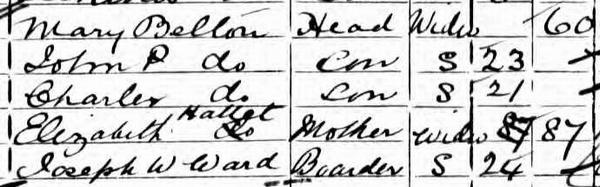 Mary Belton Head Widw 60
John P do Son S 23
Charles do Son S 21
Elizabeth Hallet do Mother Widw 87 87
Joseph W Ward Boarder S 24